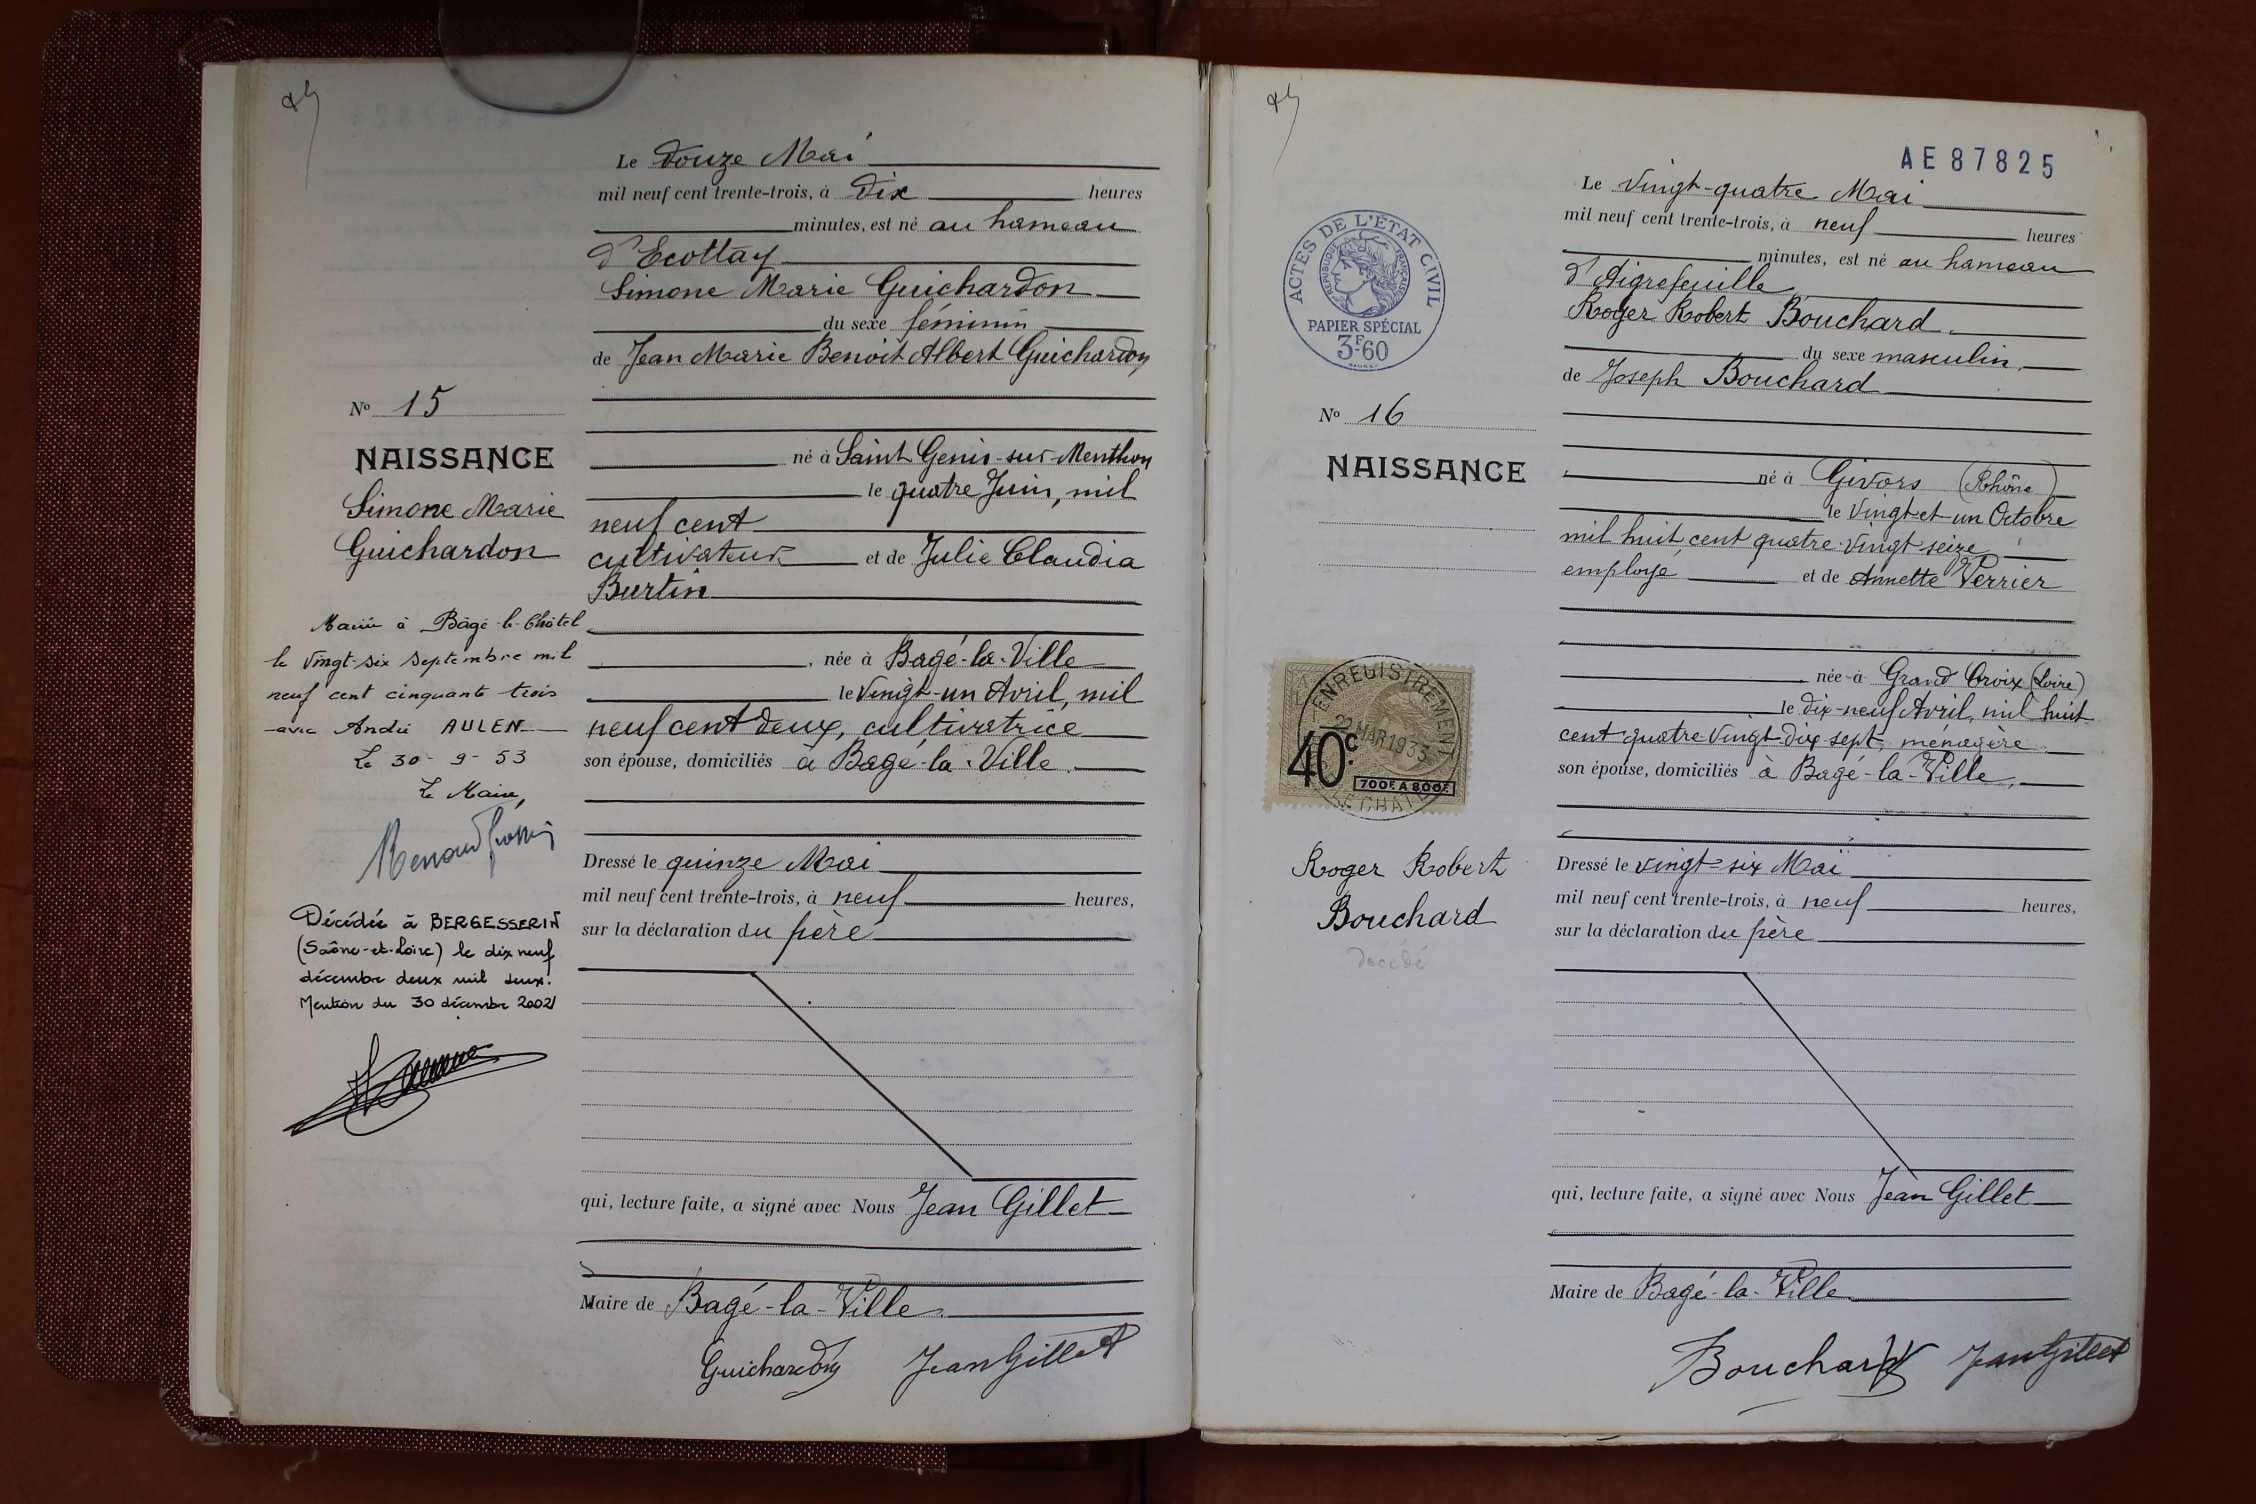 Le douze Mai
mil neuf cent trente-trois, à dix heures
minutes, est né au hameau
d'Ecottay
Simone Marie Guichardon
du sexe féminin
de Jean Marie Benoit Albert Guichardon
né à Saint Genis-sur-Menthon
le quatre Juin, mil
neuf cent
cultivateur et de Julie Claudia
Burtin
, née à Bagé-la-Ville
le vingt-un Avril, mil
neuf cent deux, cultivatrice
son épouse, domiciliés à Bagé-la-Ville.
Dressé le quinze Mai
mil neuf cent trente-trois, à neuf heures,
sur la déclaration du père
qui, lecture faite, a signé avec Nous Jean Gillet
Maire de Bagé-la-Ville
Guichardon Jean Gillet
No 15
NAISSANCE
Simone Marie
Guichardon
Mariée à Bâgé-le-Châtel
le vingt-six septembre mil
neuf cent cinquante trois
avec André AULEN
Le 30-9-53
Le Maire,
Décédée à BERGESSERIN
(Saône-et-Loire) le dix neuf
décembre deux mil deux.
Mention du 30 décembre 2002
AE87825
Le vingt-quatre Mai
mil neuf cent trente-trois, à neuf heures
minutes, est né au hameau
d'Aigrefeuille
Roger Robert Bouchard.
du sexe masculin.
de Joseph Bouchard
né à Givors (Rhône)
le vingt et un Octobre
mil huit cent quatre-vingt seize
employé et de Annette Verrier
née à Grand Croix (Loire)
le dix-neuf Avril, mil huit
cent quatre-vingt-dix-sept, ménagère
son épouse, domiciliés à Bagé-la-Ville,
Dressé le vingt-six Mai
mil neuf cent trente-trois, à neuf heures,
sur la déclaration du père
qui, lecture faite, a signé avec Nous Jean Gillet
Maire de Bagé-la-Ville
Bouchard Jean Gillet
ACTES DE L'ÉTAT CIVIL
RÉPUBLIQUE FRANÇAISE
PAPIER SPÉCIAL
3F60
No 16
NAISSANCE
ENREGISTREMENT
22 MAR 1933
40c
700F A 800F
Roger Robert
Bouchard
Décédé